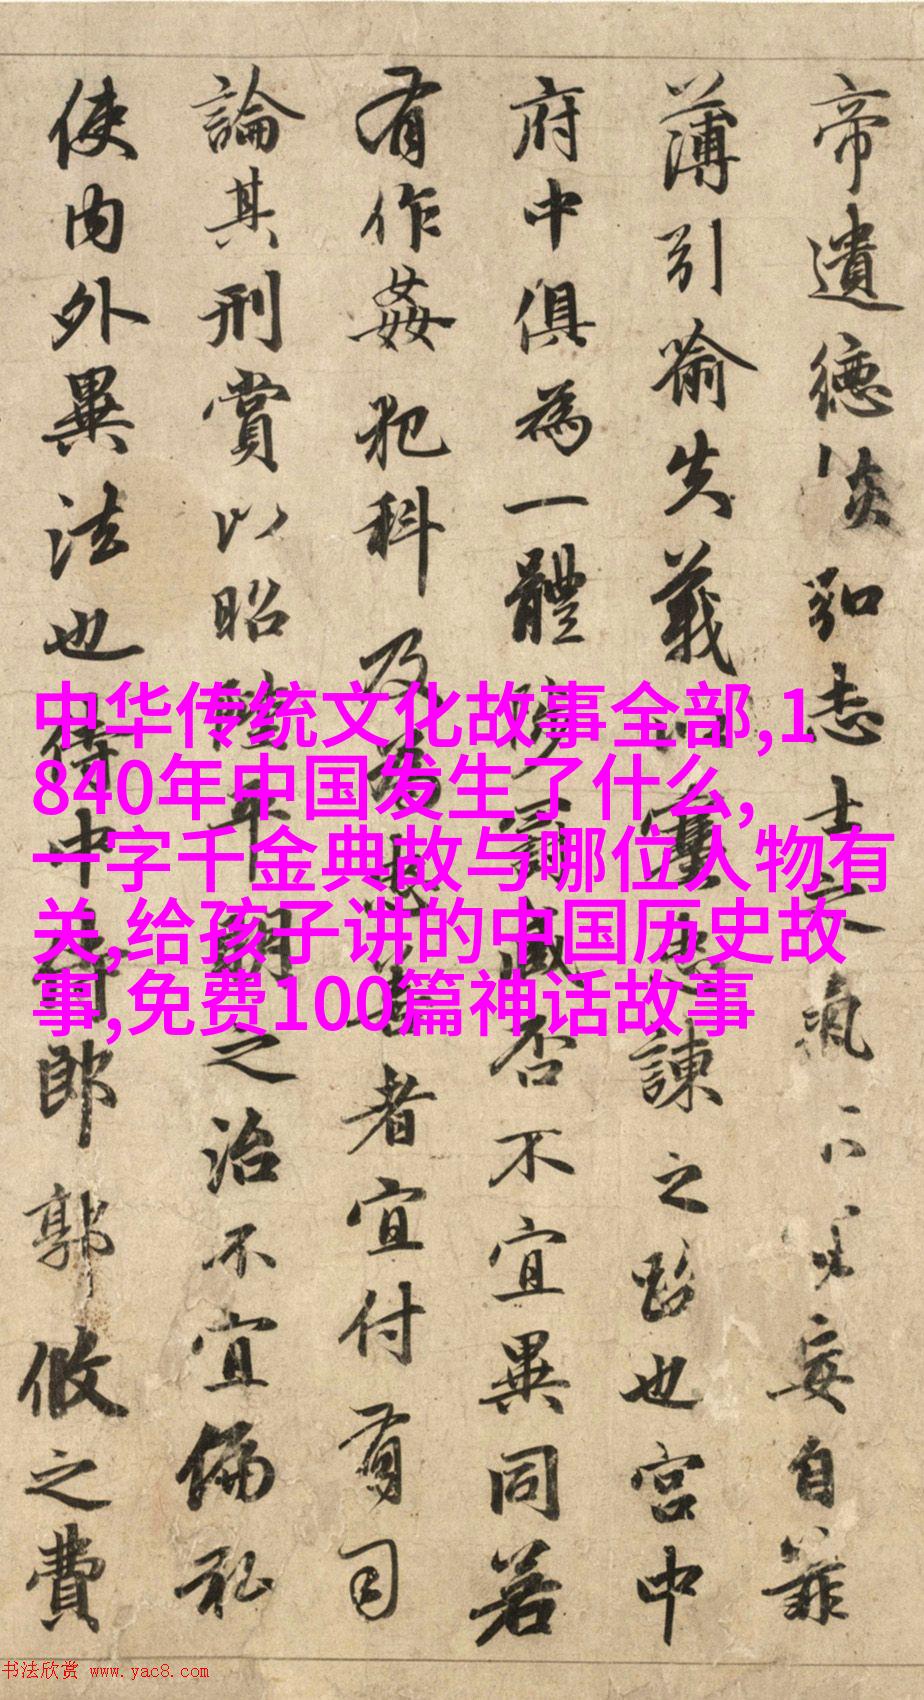 帝遺德恢弘志士之氣不宜妄自菲
薄引喻失義以塞忠諫之路也宮中
府中俱為一體陟罰臧否不宜異同若
有作姦犯科及為忠善者宜付有司
論其刑賞以昭陛下平明之治不宜偏私
使內外異法也侍中侍郎郭攸之費
中华传统文化故事全部,1
840年中国发生了什么,
一字千金典故与哪位人物有
关,给孩子讲的中国历史故
事,免费100篇神话故事
书法欣赏 www.yac8.com